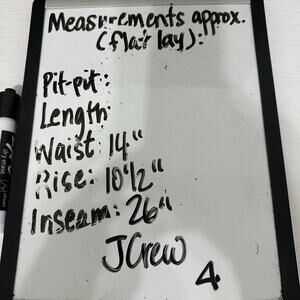 Measurements approx.
(flat lay):
Pit-pit:
Length
Waist: 14"
Rise: 10 1/2"
Inseam: 26"
JCrew
4
dry erase